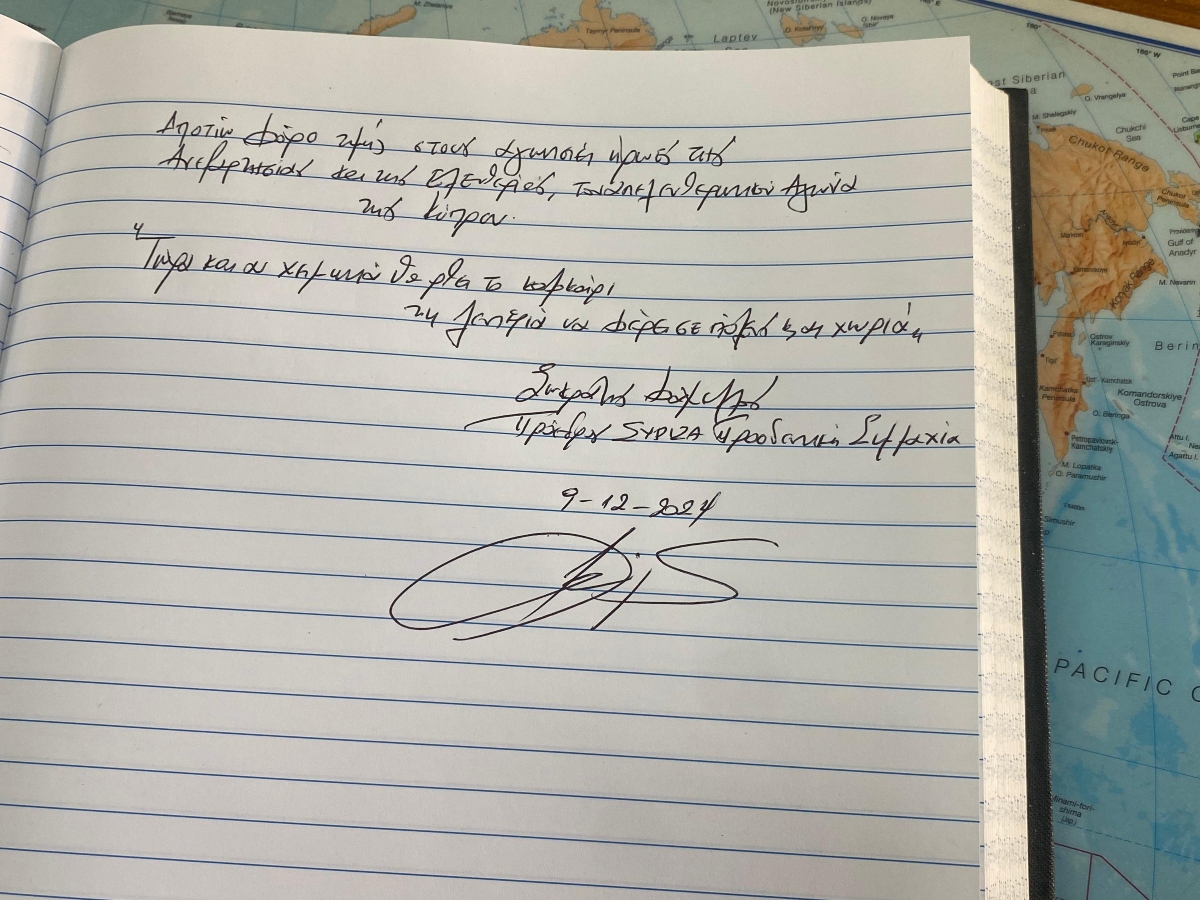 M. Zhelaniya
Taymyr Peninsula
(New Siberian Islands)
O. Kotel'nyy
O. Novaya Sibir'
Laptev
180°
180° W
East Siberian
O. Vrangelya
M. Shelagskiy
Chukchi Sea
Chukot Range
Gulf of Anadyr
Koryak Range
M. Navarin
Ostrov Karaginskiy
Berin
Kamchatka Peninsula
Komandorskiye Ostrova
O. Beringa
Petropavlovsk-Kamchatskiy
M. Lopatka
O. Paramushir
Attu I.
Agattu I.
Simushir
PACIFIC
Minami-tori-shima
(Jap)
Αποτίω φόρο τιμής στους αγωνιστές ήρωες της
Ανεξαρτησίας και της Ελευθερίας, του απελευθερωτικού Αγώνα
της Κύπρου.
"Τώρα κι αν χειμωνιά θε ρθει το καλοκαίρι
τη λευτεριά να φέρει σε πόλεις και χωριά"
Σωκράτης Φάμελλος
Πρόεδρος SYRIZA Προοδευτική Συμμαχία
9-12-2024